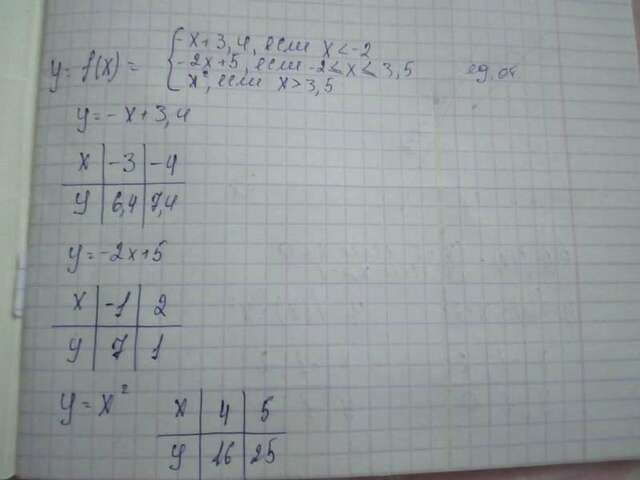 y = f(x) = { -x+3,4, если x < -2
-2x+5, если -2 ≤ x ≤ 3,5 ед. от
x², если x > 3,5
y = -x+3,4
x | -3 | -4
y | 6,4 | 7,4
y = -2x+5
x | -1 | 2
y | 7 | 1
y = x²
x | 4 | 5
y | 16 | 25